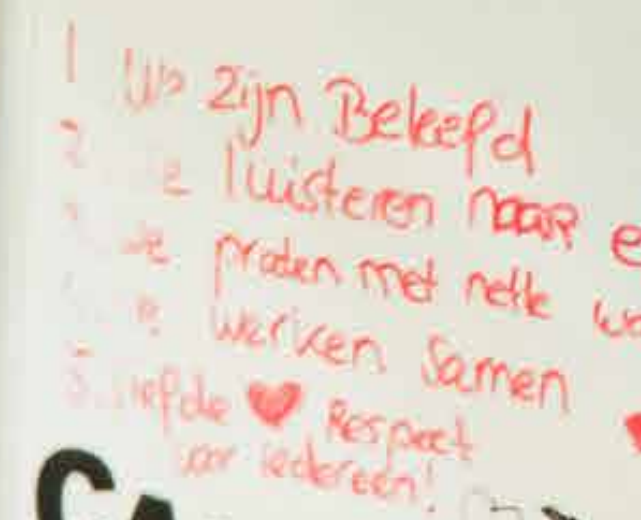 1 We zijn Beleefd
2 We luisteren naar
3 We praten met nette
werken Samen
5 Liefde ♥ Respect
voor iedereen!
CA